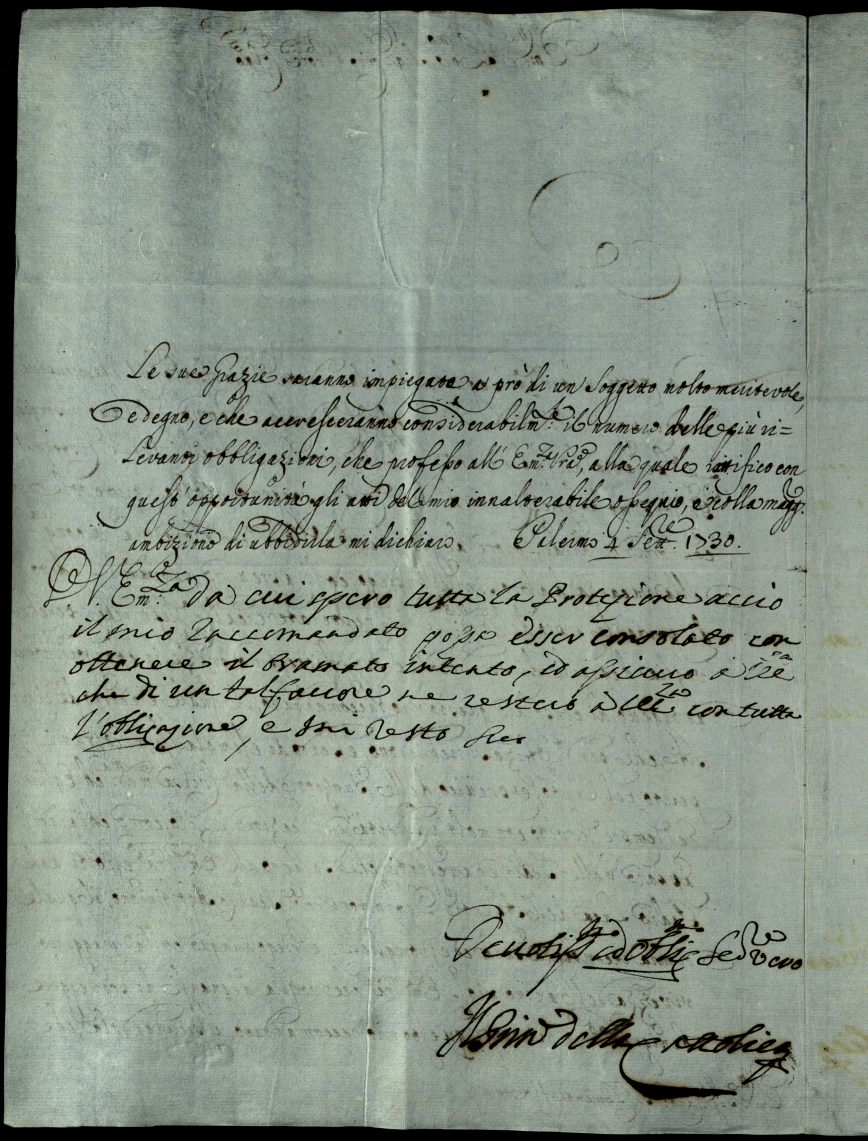 Le sue Grazie saranno impiegate a prò di un Soggetto molto meritevole,
e degno, e che accresceranno considerabilm.te il numero delle più ri=
levanti obbligazioni, che professo all' Em.za Vra, alla quale ratifico con
quest' opportunità gli atti del mio innalterabile ossequio, e colla magg.re
ambizione di ubbidirla mi dichiaro Palermo 4 Sett.re 1730.
V. Em.za da cui spero tutta la Protezione acciò
il mio Raccomandato possa esser consolato con
ottenere il bramato intento, ed assicuro à
che di un tal favore ne resterò à con tutta
l'obligazione, e mi resto
Devotiss.mo ed Oblig.mo Ser.re Vero
Il Prin.e della Cattolica